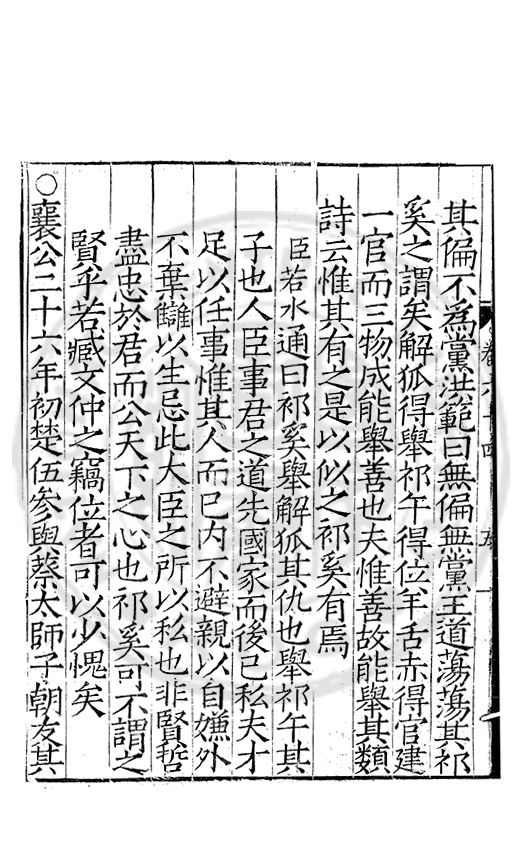 其偏不為黨洪範曰無偏無黨王道蕩蕩其祁
奚之謂矣解狐得舉祁午得位羊舌赤得官建
一官而三物成能舉善也夫惟善故能舉其類
詩云惟其有之是以似之祁奚有焉
臣若水通曰祁奚舉解狐其仇也舉祁午其
子也人臣事君之道先國家而後己私夫才
足以任事惟其人而已内不避親以自嫌外
不棄讎以生忌此大臣之所以私也非賢哲
盡忠於君而公天下之心也祁奚可不謂之
賢乎若臧文仲之竊位者可以少愧矣
○襄公二十六年初楚伍參與蔡太師子朝友其
卷六十四